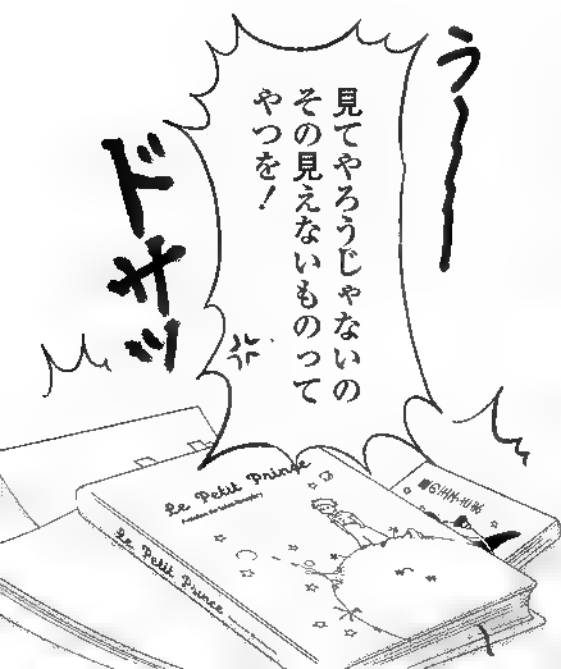 う〜〜
見てやろうじゃないの
その見えないものって
やつを！
ドサッ
Le Petit Prince
Le Petit Prince
星の王子さま